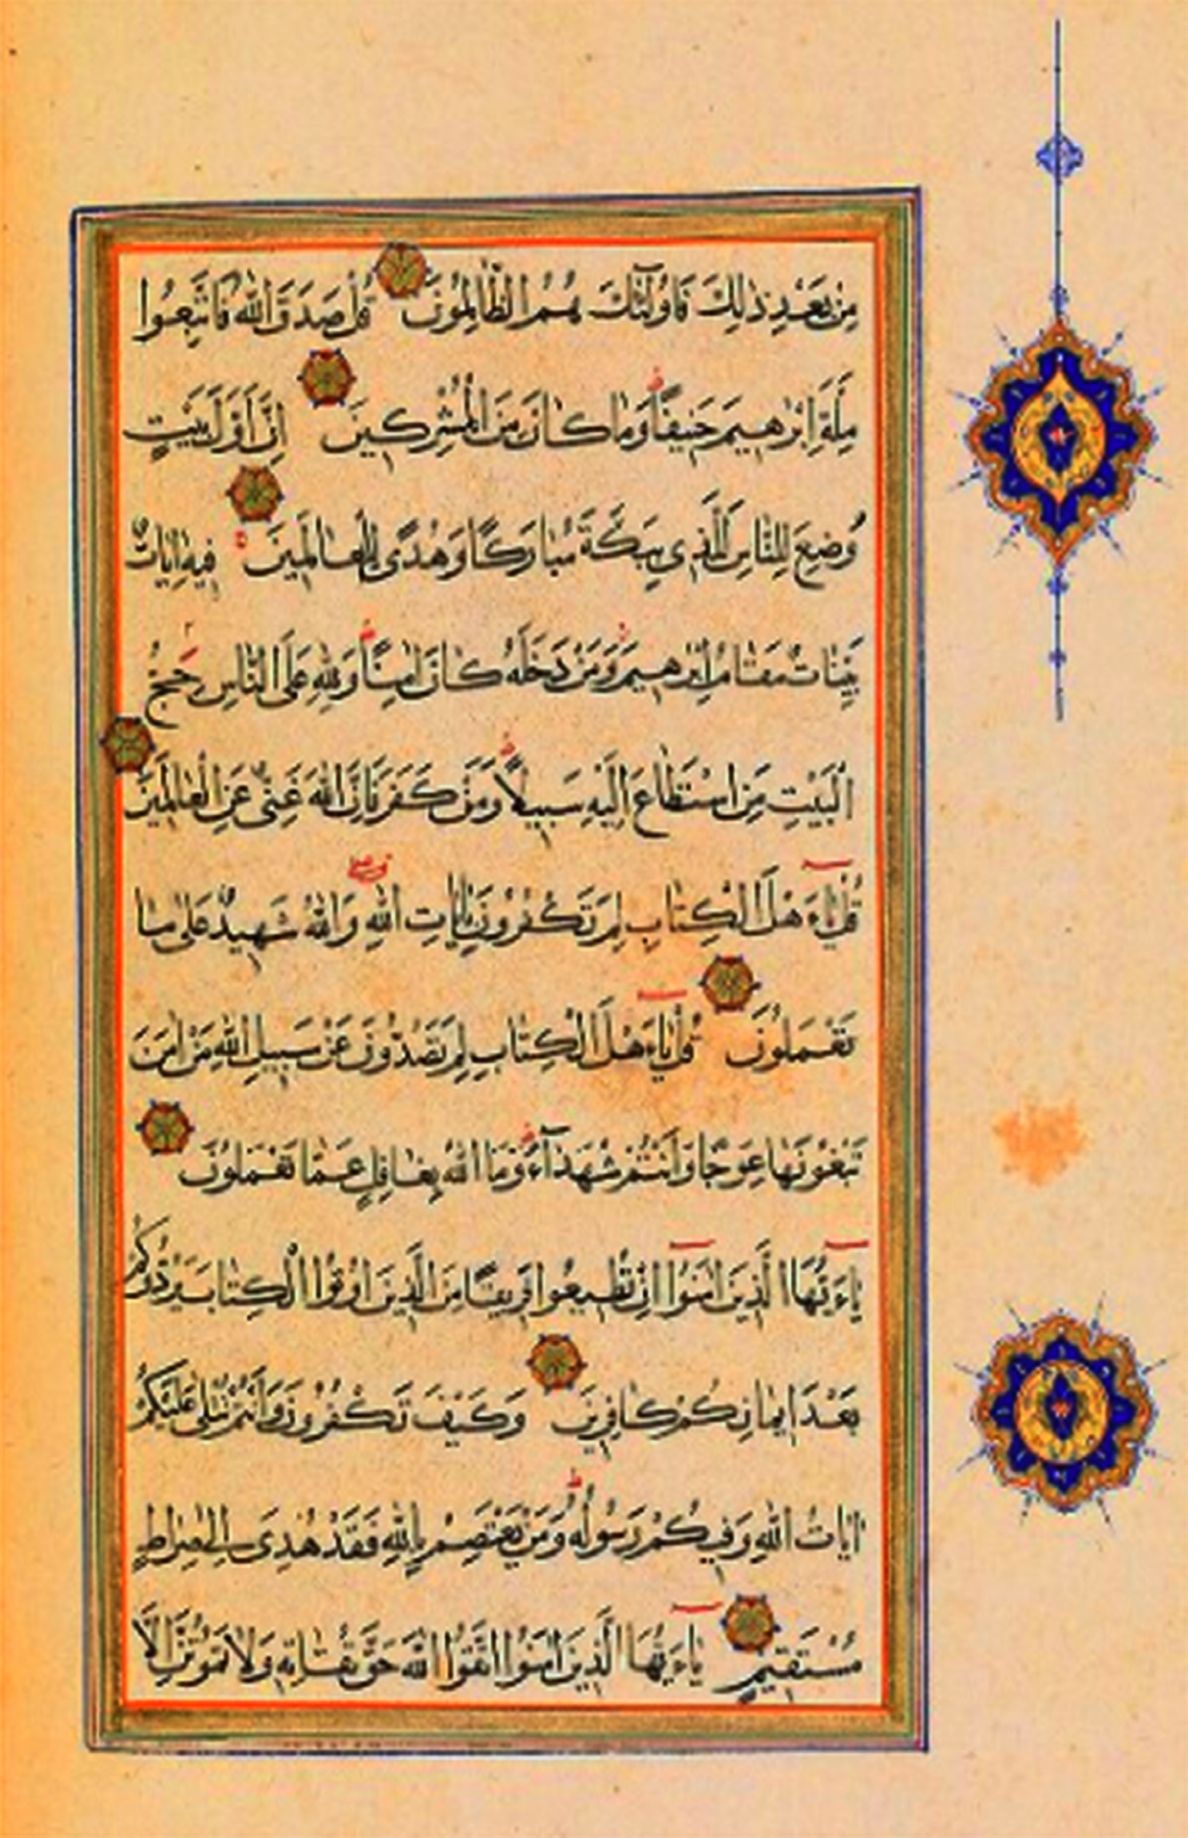 مِنْ بَعْدِ ذٰلِكَ فَاُولٰٓئِكَ هُمُ الظَّالِمُونَ قُلْ صَدَقَ اللّٰهُ فَاتَّبِعُوا
مِلَّةَ اِبْرٰهِيمَ حَنِيفًا وَمَا كَانَ مِنَ الْمُشْرِكِينَ اِنَّ اَوَّلَ بَيْتٍ
وُضِعَ لِلنَّاسِ لَلَّذِى بِبَكَّةَ مُبَارَكًا وَهُدًى لِلْعَالَمِينَ فِيهِ اٰيَاتٌ
بَيِّنَاتٌ مَقَامُ اِبْرٰهِيمَ وَمَنْ دَخَلَهُ كَانَ اٰمِنًا وَلِلّٰهِ عَلَى النَّاسِ حِجُّ
الْبَيْتِ مَنِ اسْتَطَاعَ اِلَيْهِ سَبِيلًا وَمَنْ كَفَرَ فَاِنَّ اللّٰهَ غَنِىٌّ عَنِ الْعَالَمِينَ
قُلْ يَاءَهْلَ الْكِتَابِ لِمَ تَكْفُرُونَ بِاٰيَاتِ اللّٰهِ وَاللّٰهُ شَهِيدٌ عَلٰى مَا
تَعْمَلُونَ قُلْ يَاءَهْلَ الْكِتَابِ لِمَ تَصُدُّونَ عَنْ سَبِيلِ اللّٰهِ مَنْ اٰمَنَ
تَبْغُونَهَا عِوَجًا وَاَنْتُمْ شُهَدَآءُ وَمَا اللّٰهُ بِغَافِلٍ عَمَّا تَعْمَلُونَ
يَاءَيُّهَا الَّذِينَ اٰمَنُوا اِنْ تُطِيعُوا فَرِيقًا مِنَ الَّذِينَ اُوتُوا الْكِتَابَ يَرُدُّوكُمْ
بَعْدَ اِيمَانِكُمْ كَافِرِينَ وَكَيْفَ تَكْفُرُونَ وَاَنْتُمْ تُتْلٰى عَلَيْكُمْ
اٰيَاتُ اللّٰهِ وَفِيكُمْ رَسُولُهُ وَمَنْ يَعْتَصِمْ بِاللّٰهِ فَقَدْ هُدِىَ اِلٰى صِرَاطٍ
مُسْتَقِيمٍ يَاءَيُّهَا الَّذِينَ اٰمَنُوا اتَّقُوا اللّٰهَ حَقَّ تُقَاتِهِ وَلَا تَمُوتُنَّ اِلَّا